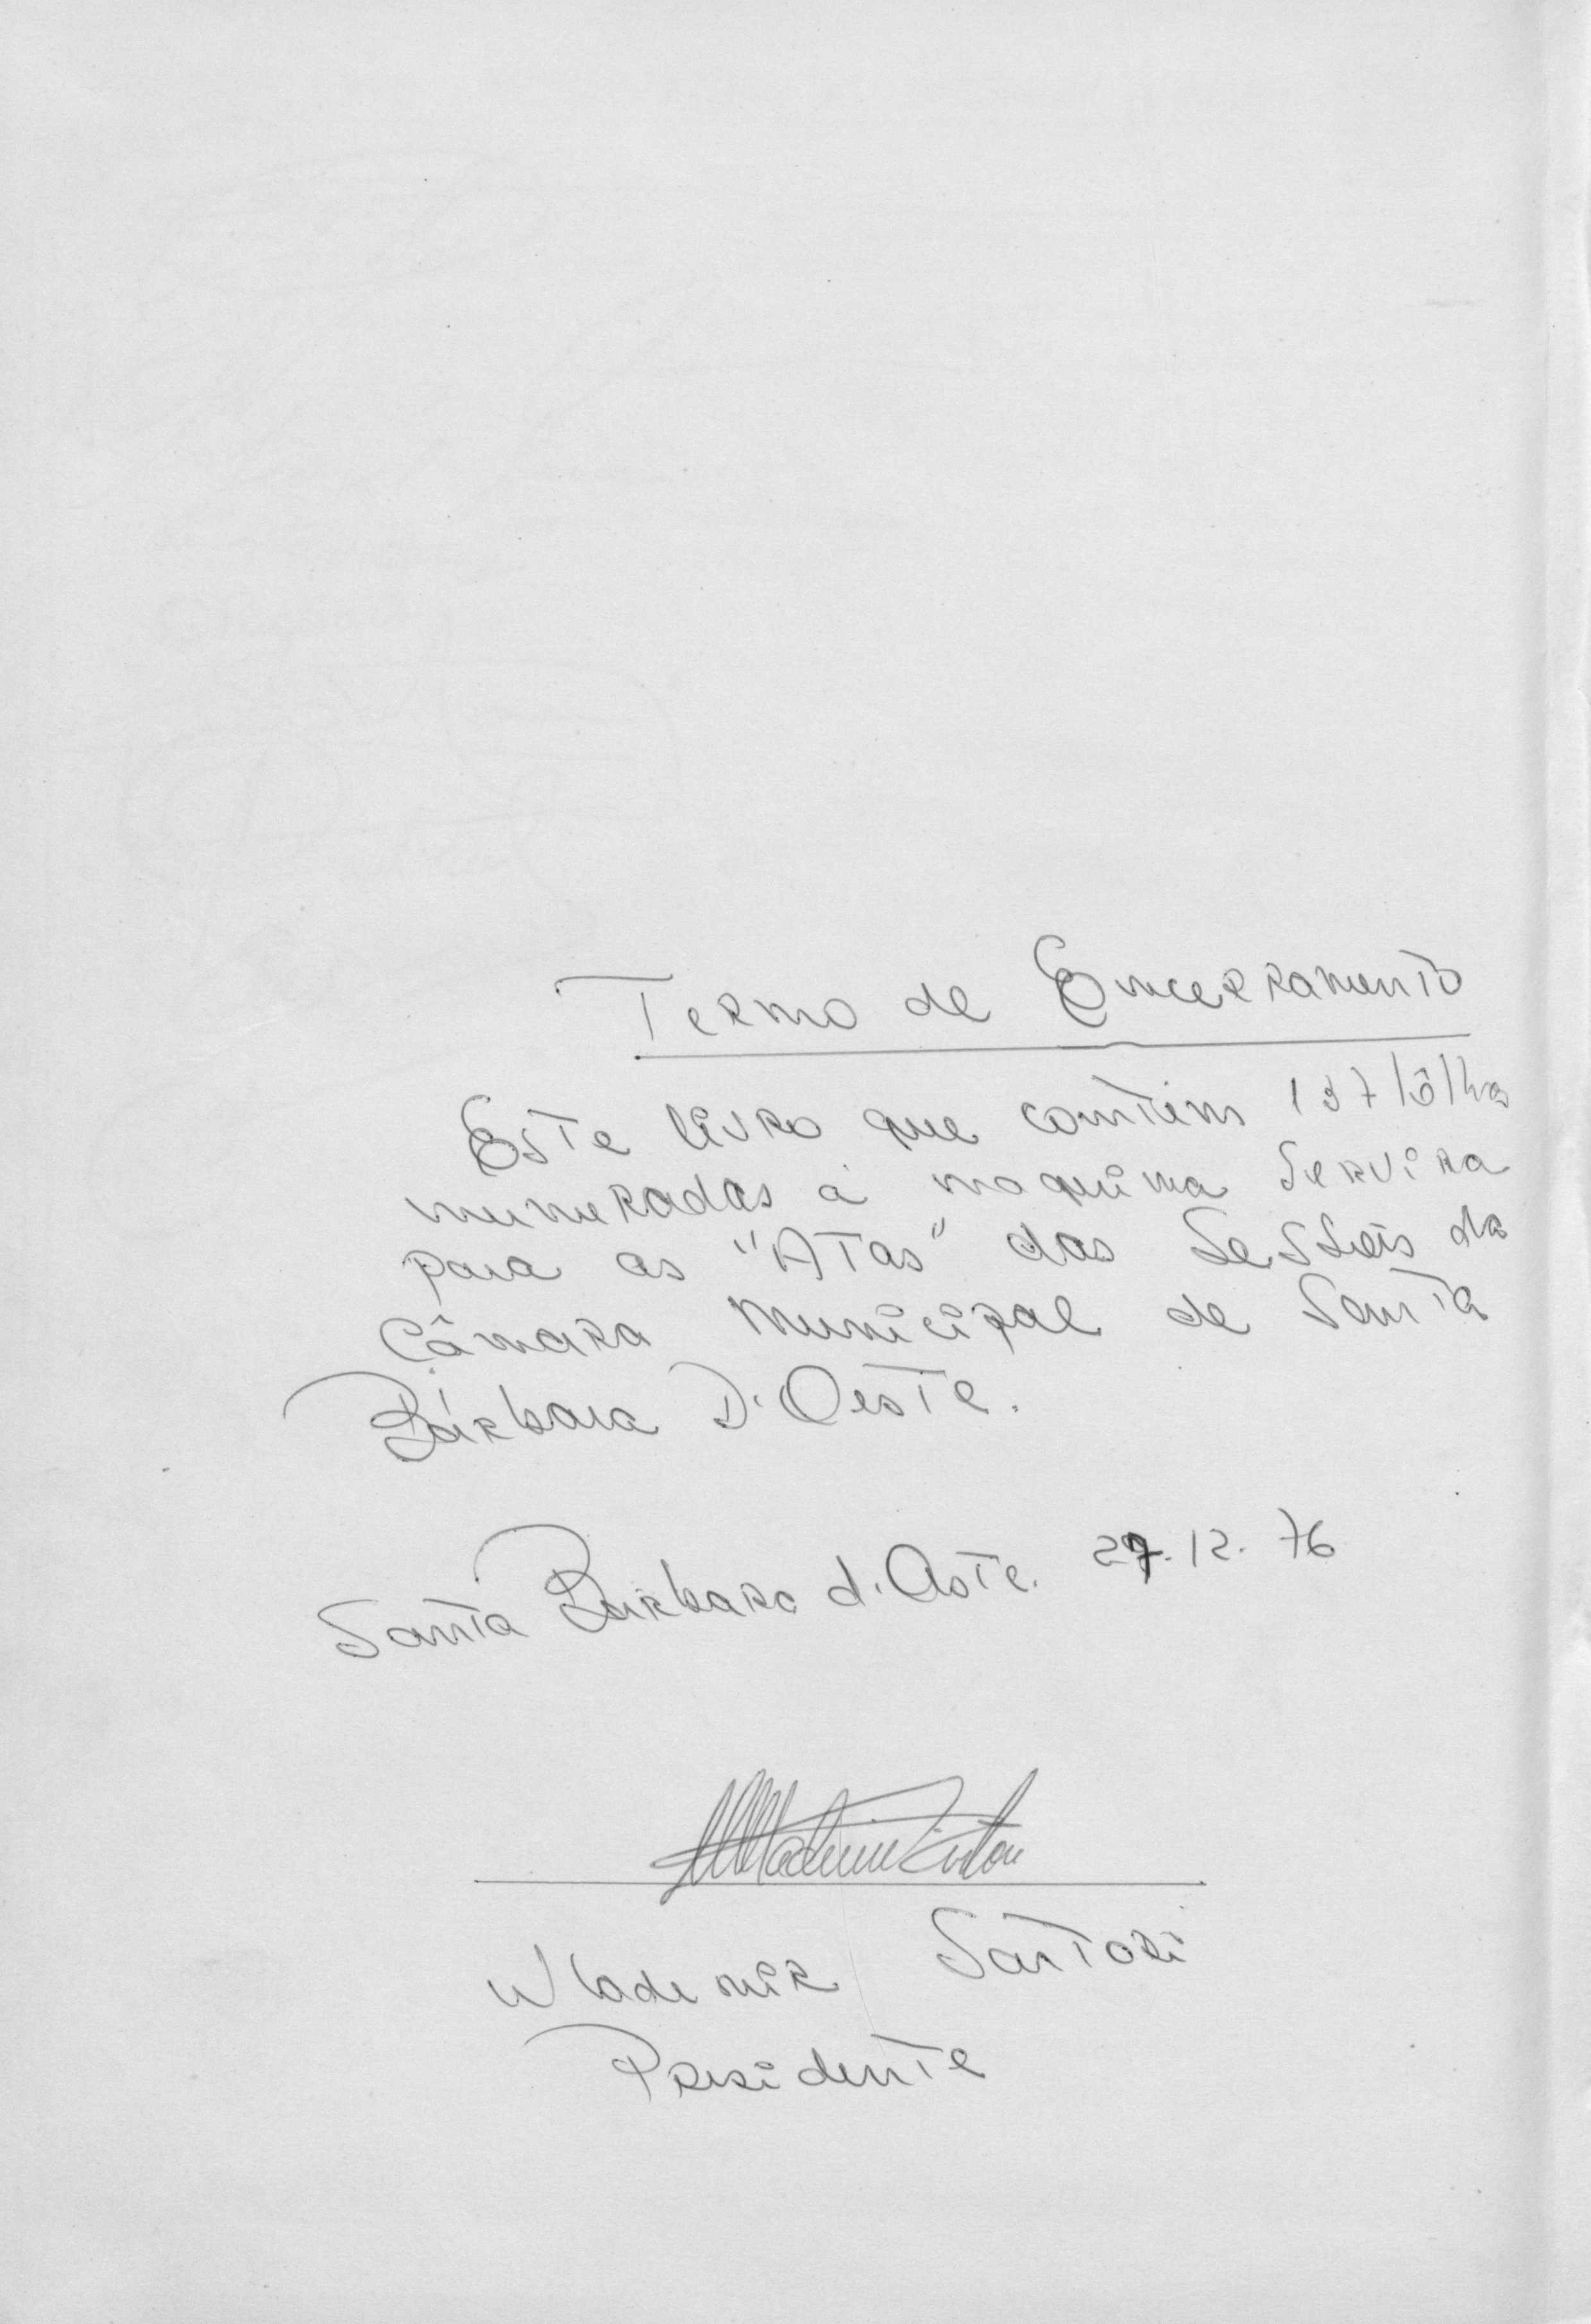 Termo de Encerramento
Este livro que contem 137 fôlhas
numeradas à maquina servira
para as "Atas" das Sessões da
Câmara Municipal de Santa
Bárbara D'Oeste.
Santa Bárbara d'Oeste. 27.12.76
Wlademir Sartori
Presidente